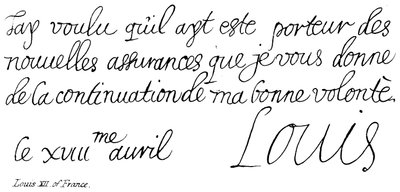 Jay voulu qu'il ayt este porteur des
nouuelles assurances que je vous donne
de la continuation de ma bonne volonte.
le xviii me auril Louis
Louis XII. of France.